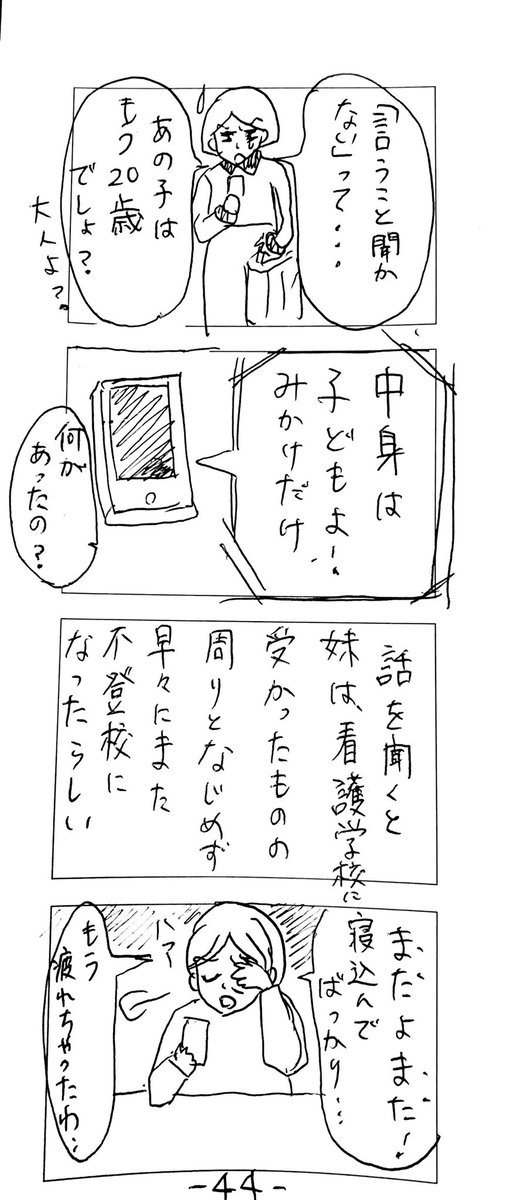 「言うこと聞か
ない」って・・・
あの子は
もう20歳
でしょ？
大人よ？
中身は
子どもよ！
みかけだけ
何が
あったの？
話を聞くと
妹は、看護学校に
受かったものの
周りとなじめず
早々にまた
不登校に
なったらしい
まだよまだ！
寝込んで
ばっかり…
ハァ
もう
疲れちゃったわ…
-44-